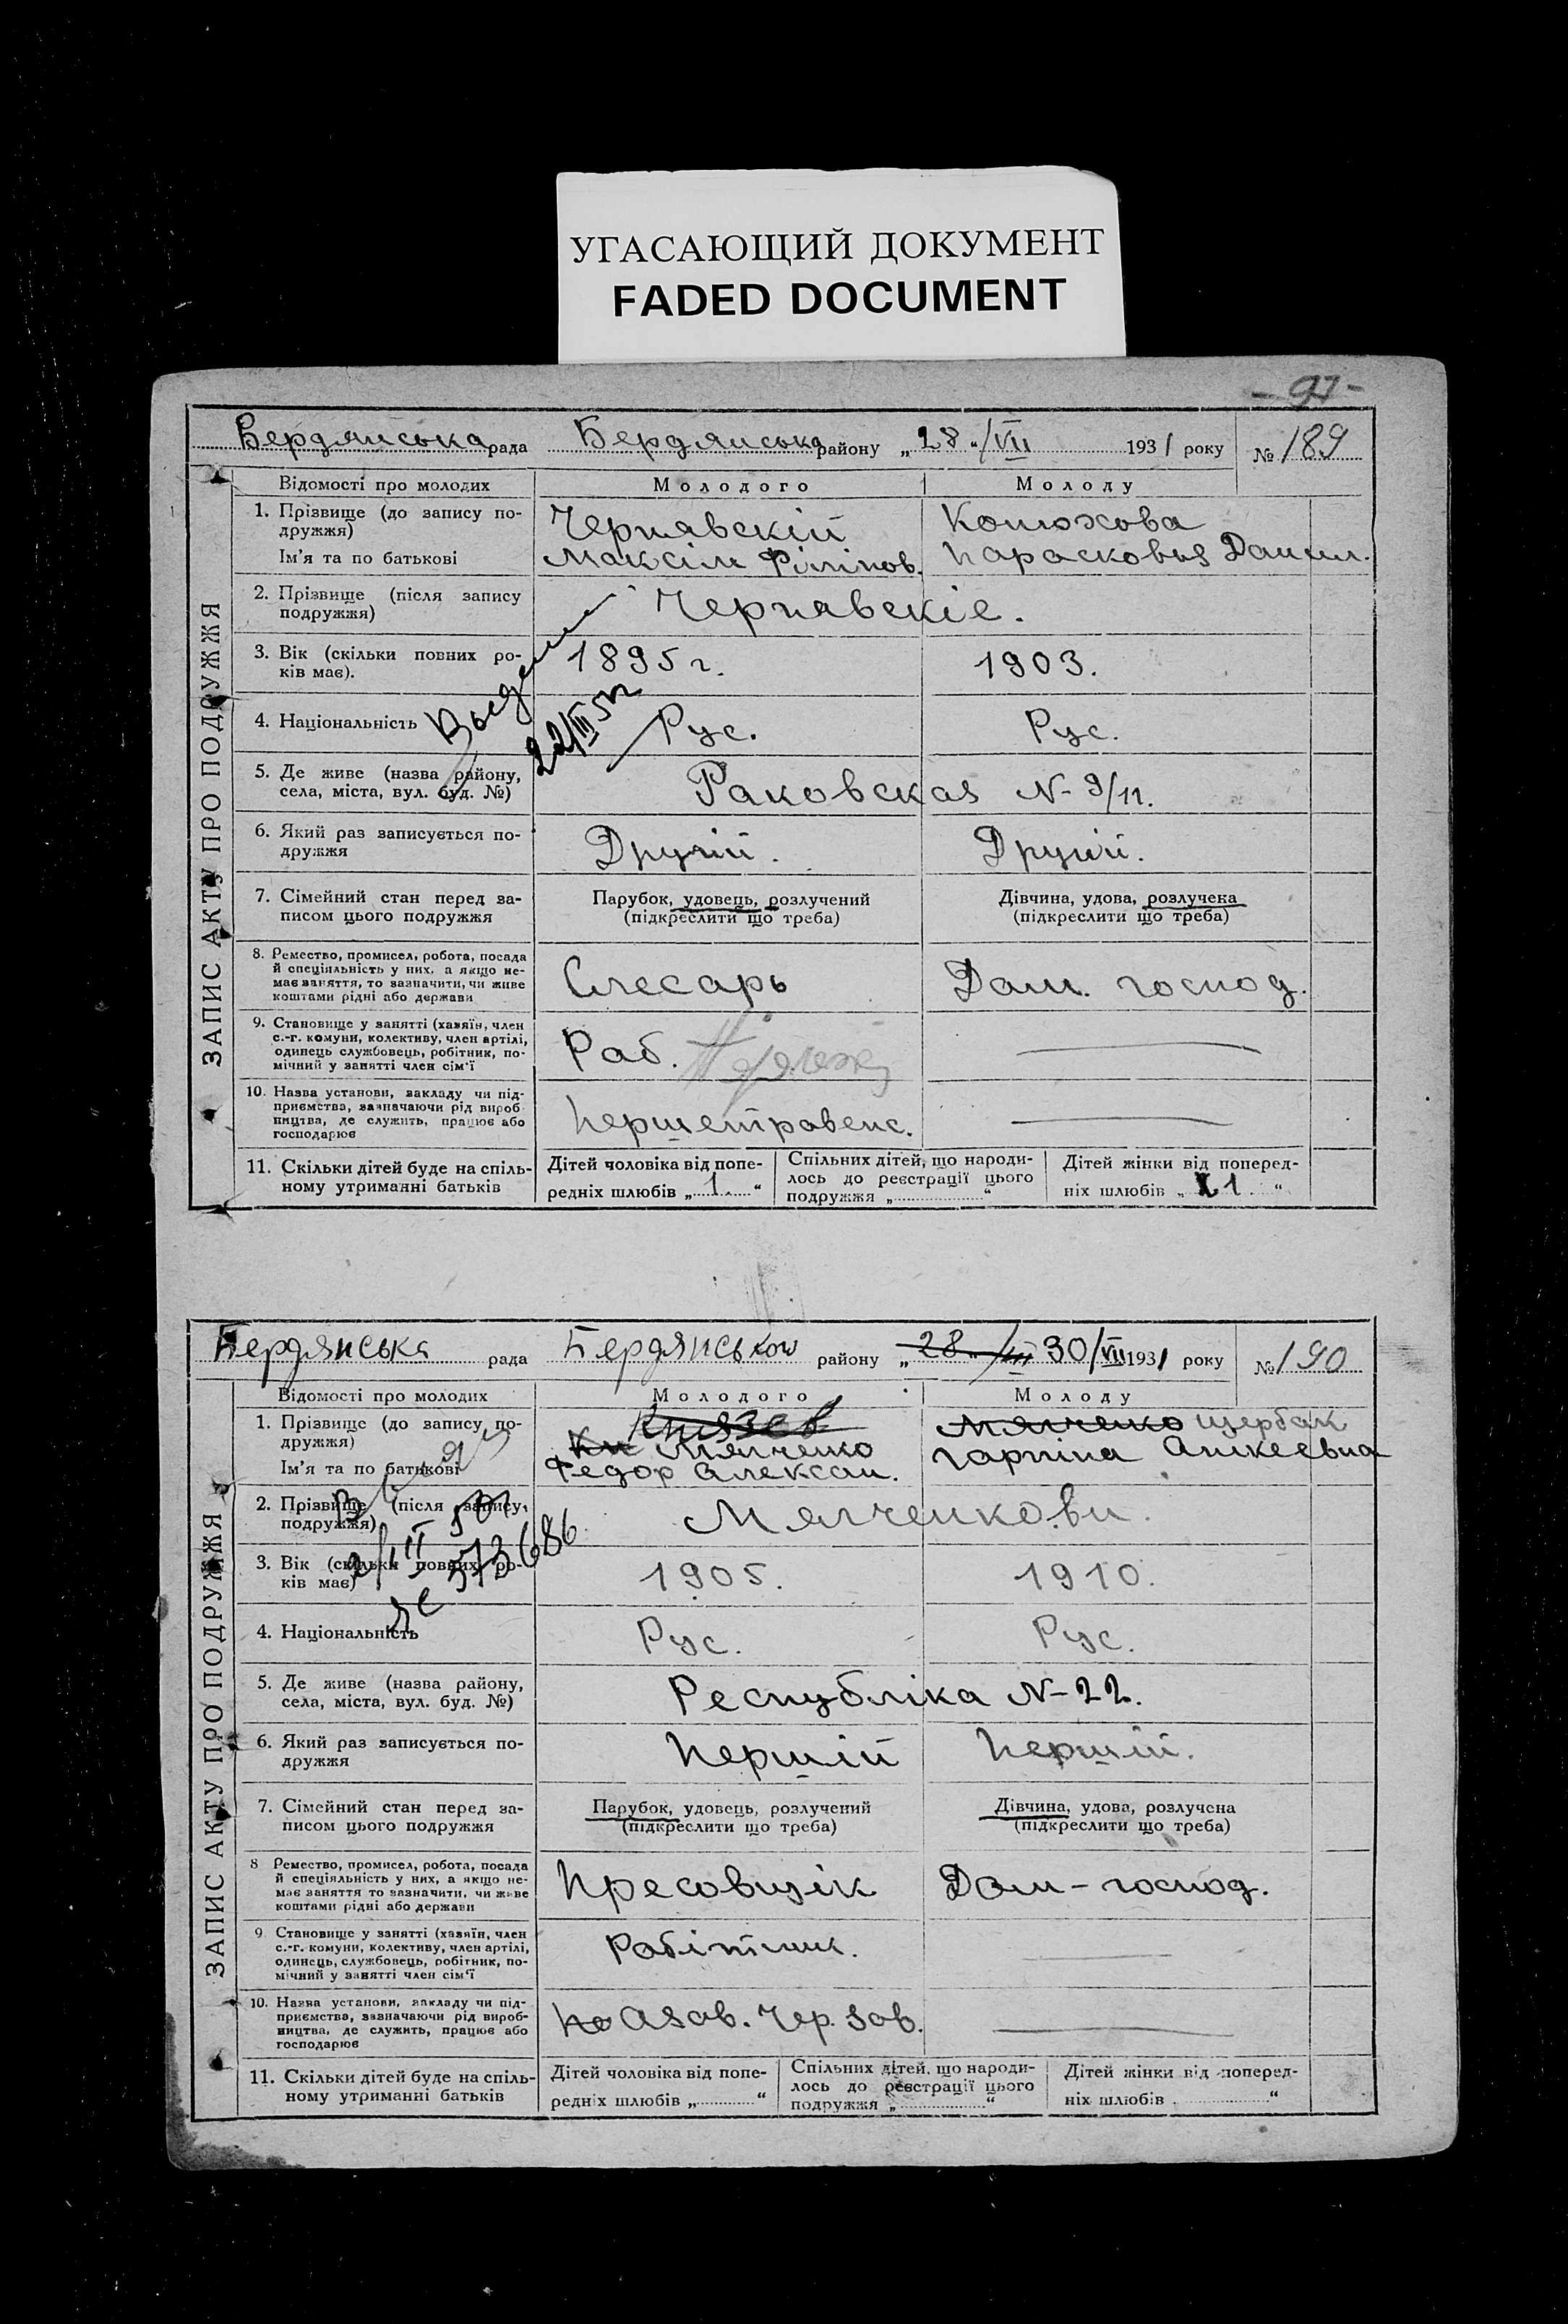 УГАСАЮЩИЙ ДОКУМЕНТ
FADED DOCUMENT
Бердянська рада Бердянська району „28“/VII 1931 року № 189
ЗАПИС АКТУ ПРО ПОДРУЖЖЯ
Відомості про молодих Молодого Молоду
1. Прізвище (до запису по-
дружжя)
Ім'я та по батькові
Чернявскій
Максім Філіпов.
Конюхова
Парасковья Данил.
2. Прізвище (після запису
подружжя)
Чернявскіе.
3. Вік (скільки повних ро-
ків має).
1895 г. 1903.
22/III 52
4. Національність Рус. Рус.
5. Де живе (назва району,
села, міста, вул. буд. №)
Раковская N- 9/11.
6. Який раз записується по-
дружжя
Другій. Другій.
7. Сімейний стан перед за-
писом цього подружжя
Парубок, удовець, розлучений
(підкреслити що треба)
Дівчина, удова, розлучена
(підкреслити що треба)
8. Ремество, промисел, робота, посада
й спеціяльність у них, а якщо не-
має заняття, то зазначити, чи живе
коштами рідні або держави
Слесарь Дом. господ.
9. Становище у занятті (хазяїн, член
с.-г. комуни, колективу, член артілі,
одинець службовець, робітник, по-
мічний у занятті член сім'ї
Раб.
10. Назва установи, закладу чи під-
приємства, зазначаючи рід вироб
ництва, де служить, працює або
господарює
Першетравенс.
11. Скільки дітей буде на спіль-
ному утриманні батьків
Дітей чоловіка від попе-
редніх шлюбів „ 1 “
Спільних дітей, що народи-
лось до реєстрації цього
подружжя „ “
Дітей жінки від поперед-
ніх шлюбів „ 1 “
Бердянська рада Бердянськои району „28“/VII 30/VII 1931 року № 190
ЗАПИС АКТУ ПРО ПОДРУЖЖЯ
Відомості про молодих Молодого Молоду
1. Прізвище (до запису по-
дружжя)
Ім'я та по батькові
Князев
Кн Мялченко
Федор Алексан.
Мялченко Щербак
Гарпіна Анкеевна
2. Прізвище (після запису
подружжя)
Мялченкови.
3. Вік (скільки повних ро-
ків має)
1905. 1910.
573686
4. Національність Рус. Рус.
5. Де живе (назва району,
села, міста, вул. буд. №)
Республіка N- 22.
6. Який раз записується по-
дружжя
Першій Першій.
7. Сімейний стан перед за-
писом цього подружжя
Парубок, удовець, розлучений
(підкреслити що треба)
Дівчина, удова, розлучена
(підкреслити що треба)
8 Ремество, промисел, робота, посада
й спеціяльність у них, а якщо не-
має заняття то зазначити, чи живе
коштами рідні або держави
Пресовщік Дом - господ.
9 Становище у занятті (хазяїн, член
с.-г. комуни, колективу, член артілі,
одинець, службовець, робітник, по-
мічний у занятті член сім'ї
Робітник.
10. Назва установи, закладу чи під-
приємства, зазначаючи рід вироб-
ництва, де служить, працює або
господарює
Азов. Чер. зов.
11. Скільки дітей буде на спіль-
ному утриманні батьків
Дітей чоловіка від попе-
редніх шлюбів „ “
Спільних дітей, що народи-
лось до реєстрації цього
подружжя „ “
Дітей жінки від поперед-
ніх шлюбів „ “